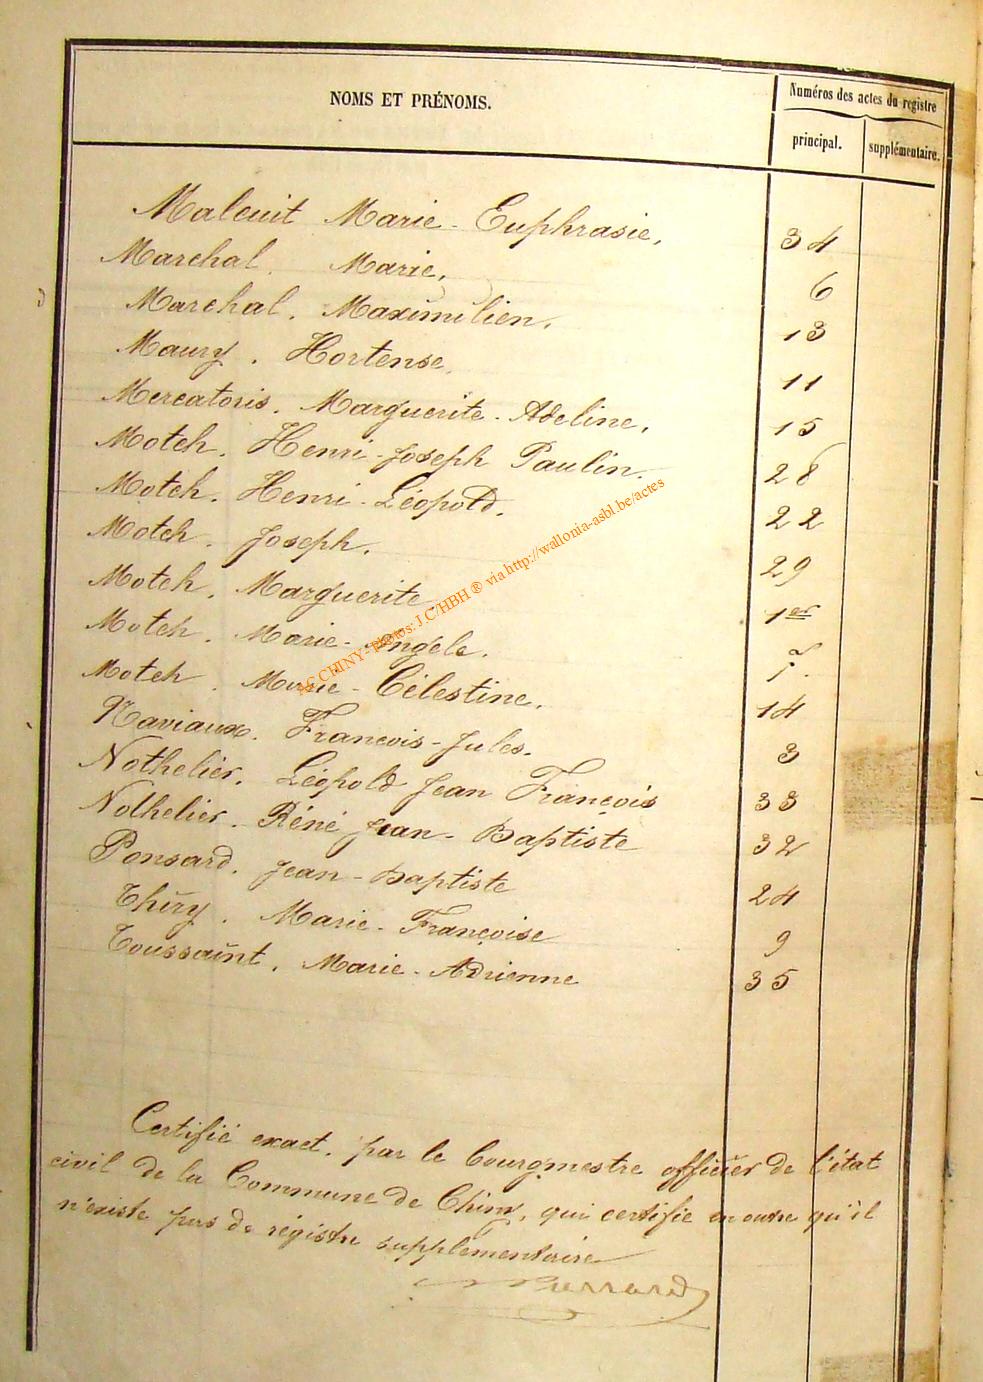 NOMS ET PRÉNOMS.
Numéros des actes du registre
principal. supplémentaire.
Maleuit Marie-Euphrasie, 34
Marchal. Marie, 6
Marchal. Maximilien. 13
Maury. Hortense. 11
Mercatoris. Marguerite-Adeline, 15
Motch. Henri-Joseph Paulin. 28
Motch. Henri-Léopold. 22
Motch. Joseph. 29
Motch. Marguerite. 1er
Motch. Marie-Angele.
Motch. Marie-Célestine. 14
Naviaux. Francois-Jules. 3
Nothelier. Léopold Jean François 33
Nothelier. Réné Jean-Baptiste 32
Ponsard. Jean-Baptiste 24
Thiry. Marie-Françoise 9
Toussaint. Marie-Adrienne 35
AC CHINY - Photos: J.C/HBH ® via http://wallonia-asbl.be/actes
Certifié exact, par le bourgmestre officier de l'état
civil de la Commune de Chiny, qui certifie en outre qu'il
n'existe pas de régistre supplémentaire